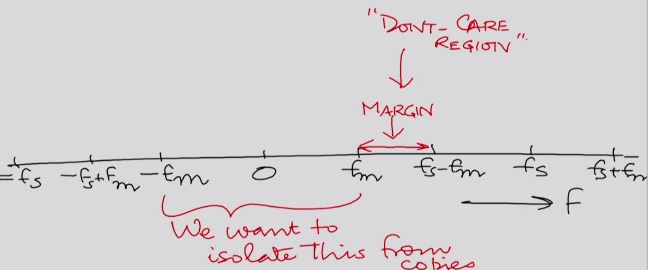 "DONT-CARE
REGION"
MARGIN
-fs -fs+fm -fm 0 fm fs-fm fs fs+fm
F
We want to
isolate this from
copies